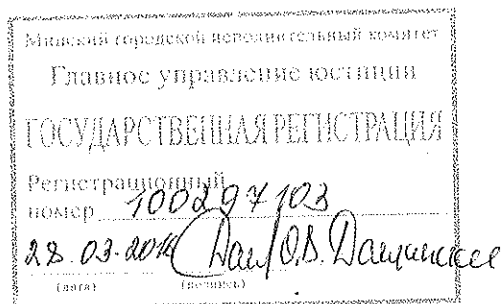 Минский городской исполнительный комитет
Главное управление юстиции
ГОСУДАРСТВЕННАЯ РЕГИСТРАЦИЯ
Регистрационный
номер 100297103
28.03. О.В.
(дата) (подпись)